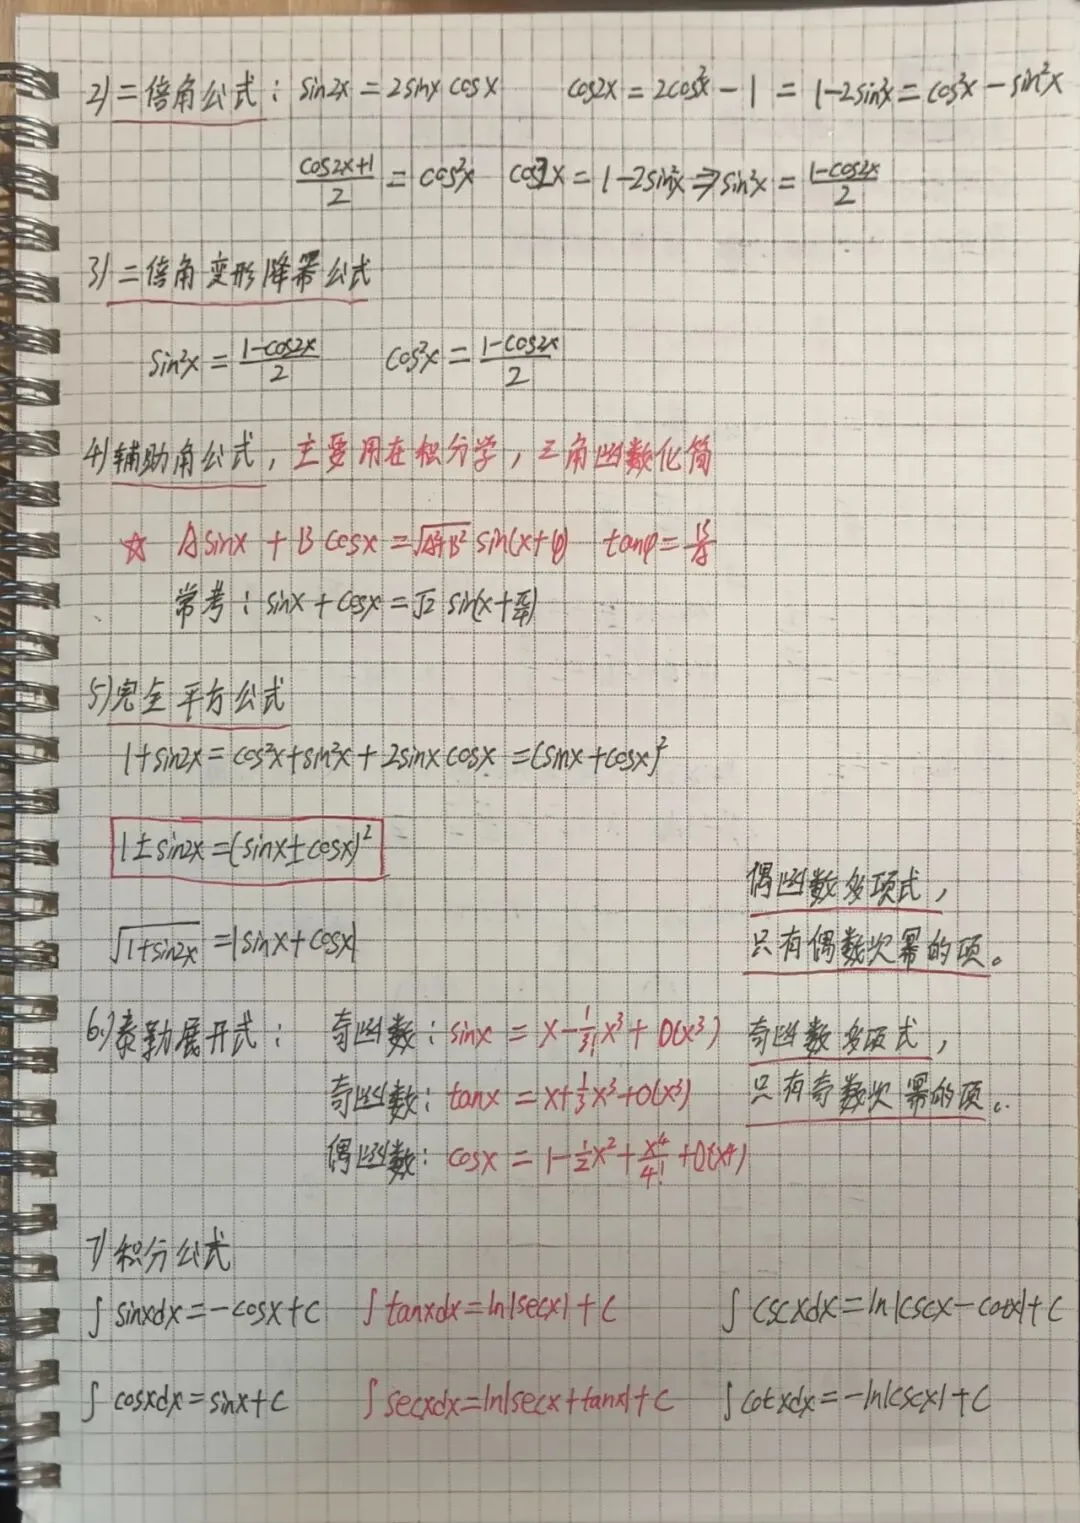 2) 二倍角公式: sin2x = 2sinx cosx   cos2x = 2cos²x - 1 = 1-2sin²x = cos²x - sin²x
(cos2x+1)/2 = cos²x   cos2x = 1-2sin²x ⇒ sin²x = (1-cos2x)/2
3) 二倍角变形降幂公式
sin²x = (1-cos2x)/2   cos²x = (1-cos2x)/2
4) 辅助角公式, 主要用在积分学, 三角函数化简
☆ Asinx + Bcosx = √(A²+B²) sin(x+φ)   tanφ = B/A
常考: sinx + cosx = √2 sin(x+π/4)
5) 完全平方公式
1+sin2x = cos²x+sin²x + 2sinx cosx = (sinx+cosx)²
1±sin2x = (sinx±cosx)²
√(1+sin2x) = |sinx+cosx|
偶函数多项式,
只有偶数次幂的项。
6) 泰勒展开式: 奇函数: sinx = x - 1/3! x³ + O(x³)
奇函数: tanx = x + 1/3 x³ + O(x³)
偶函数: cosx = 1 - 1/2 x² + x⁴/4! + O(x⁴)
奇函数多项式,
只有奇数次幂的项。
7) 积分公式
∫ sinxdx = -cosx+C   ∫ tanxdx = ln|secx|+C   ∫ cscxdx = ln|cscx-cotx|+C
∫ cosxdx = sinx+C   ∫ secxdx = ln|secx+tanx|+C   ∫ cotxdx = -ln|cscx|+C